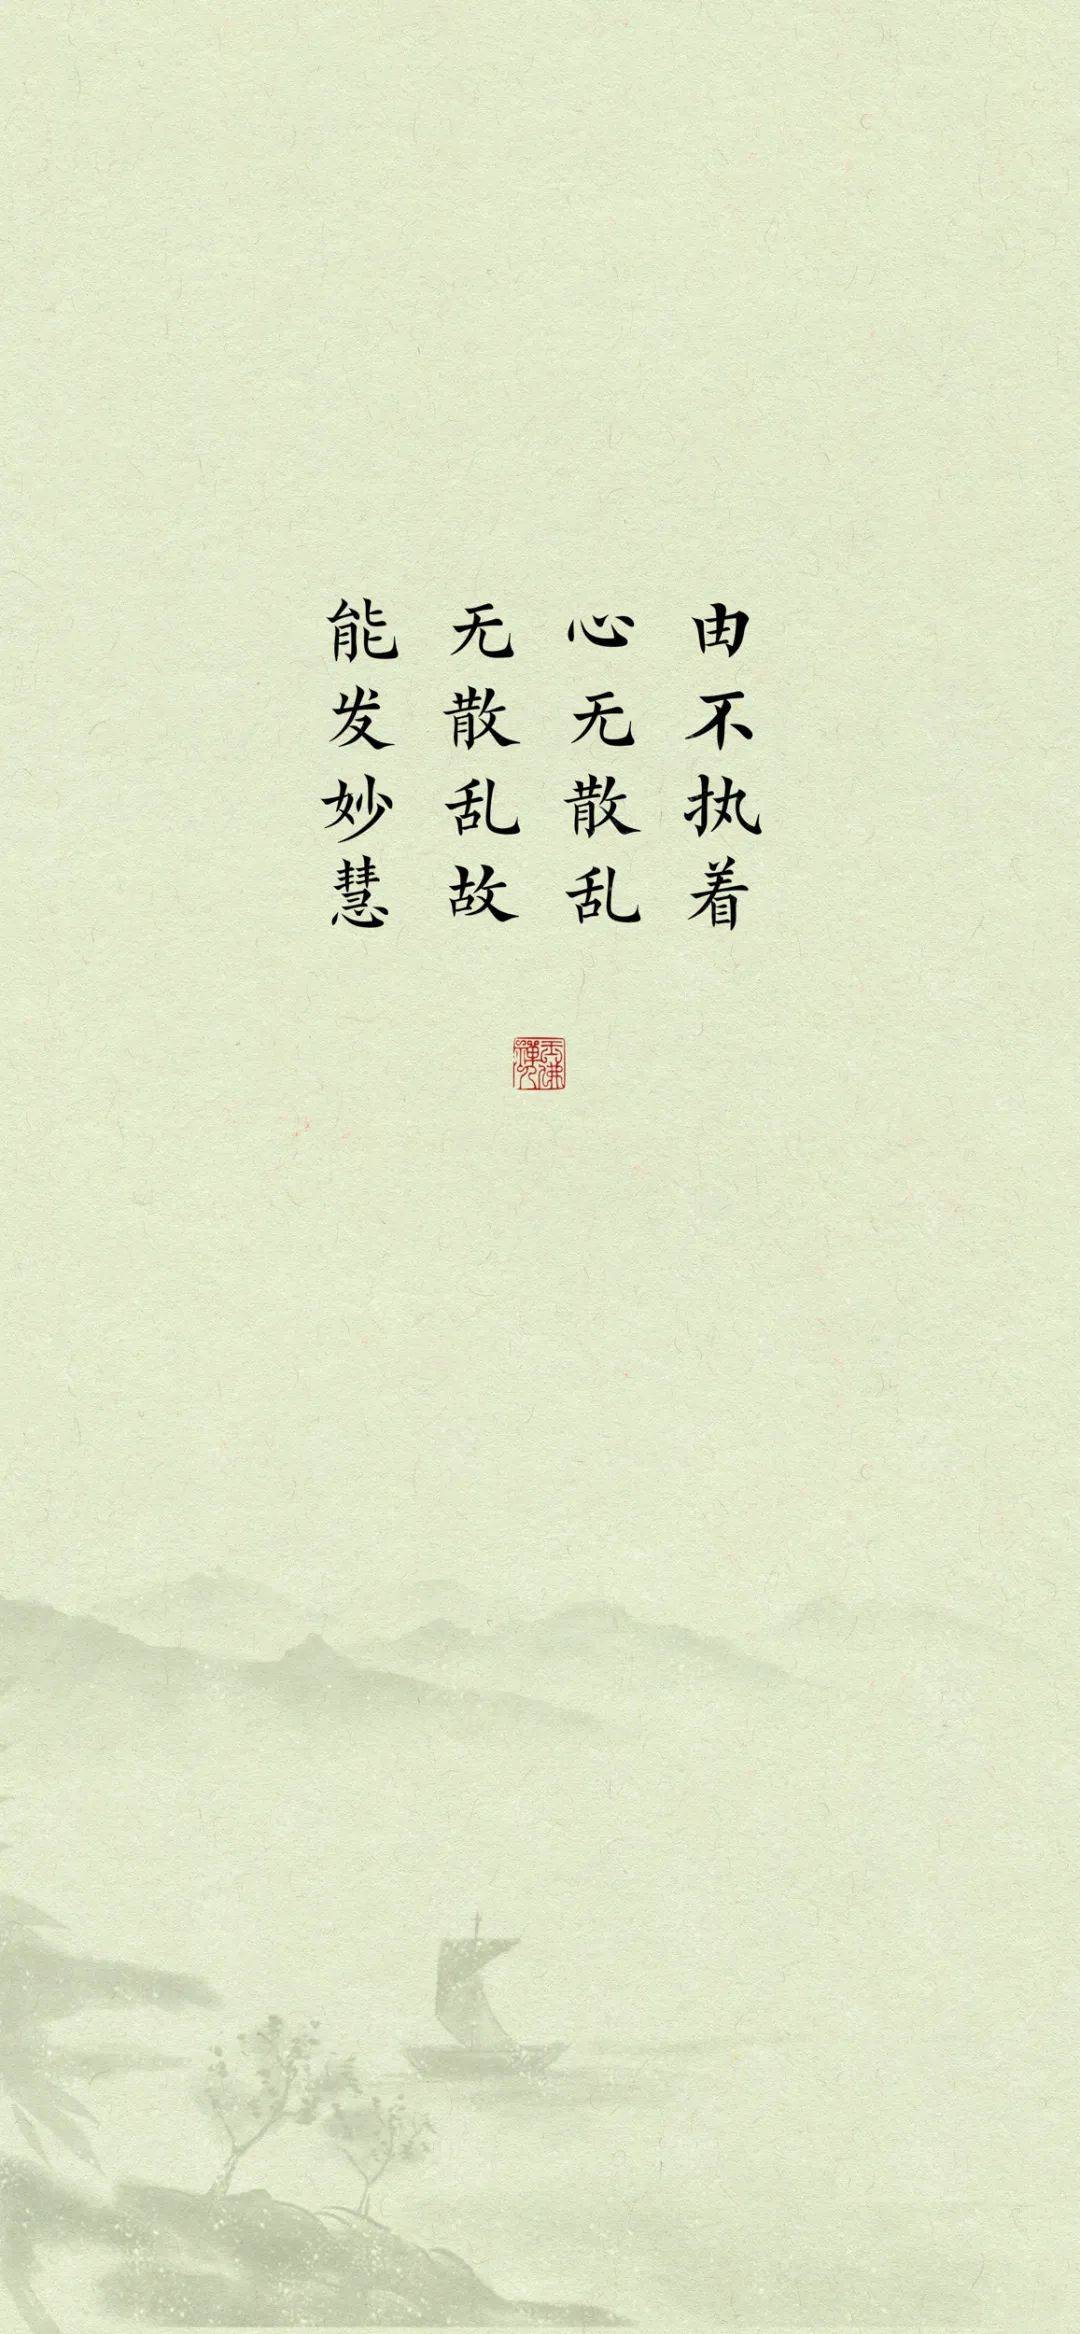 由不执着
心无散乱
无散乱故
能发妙慧